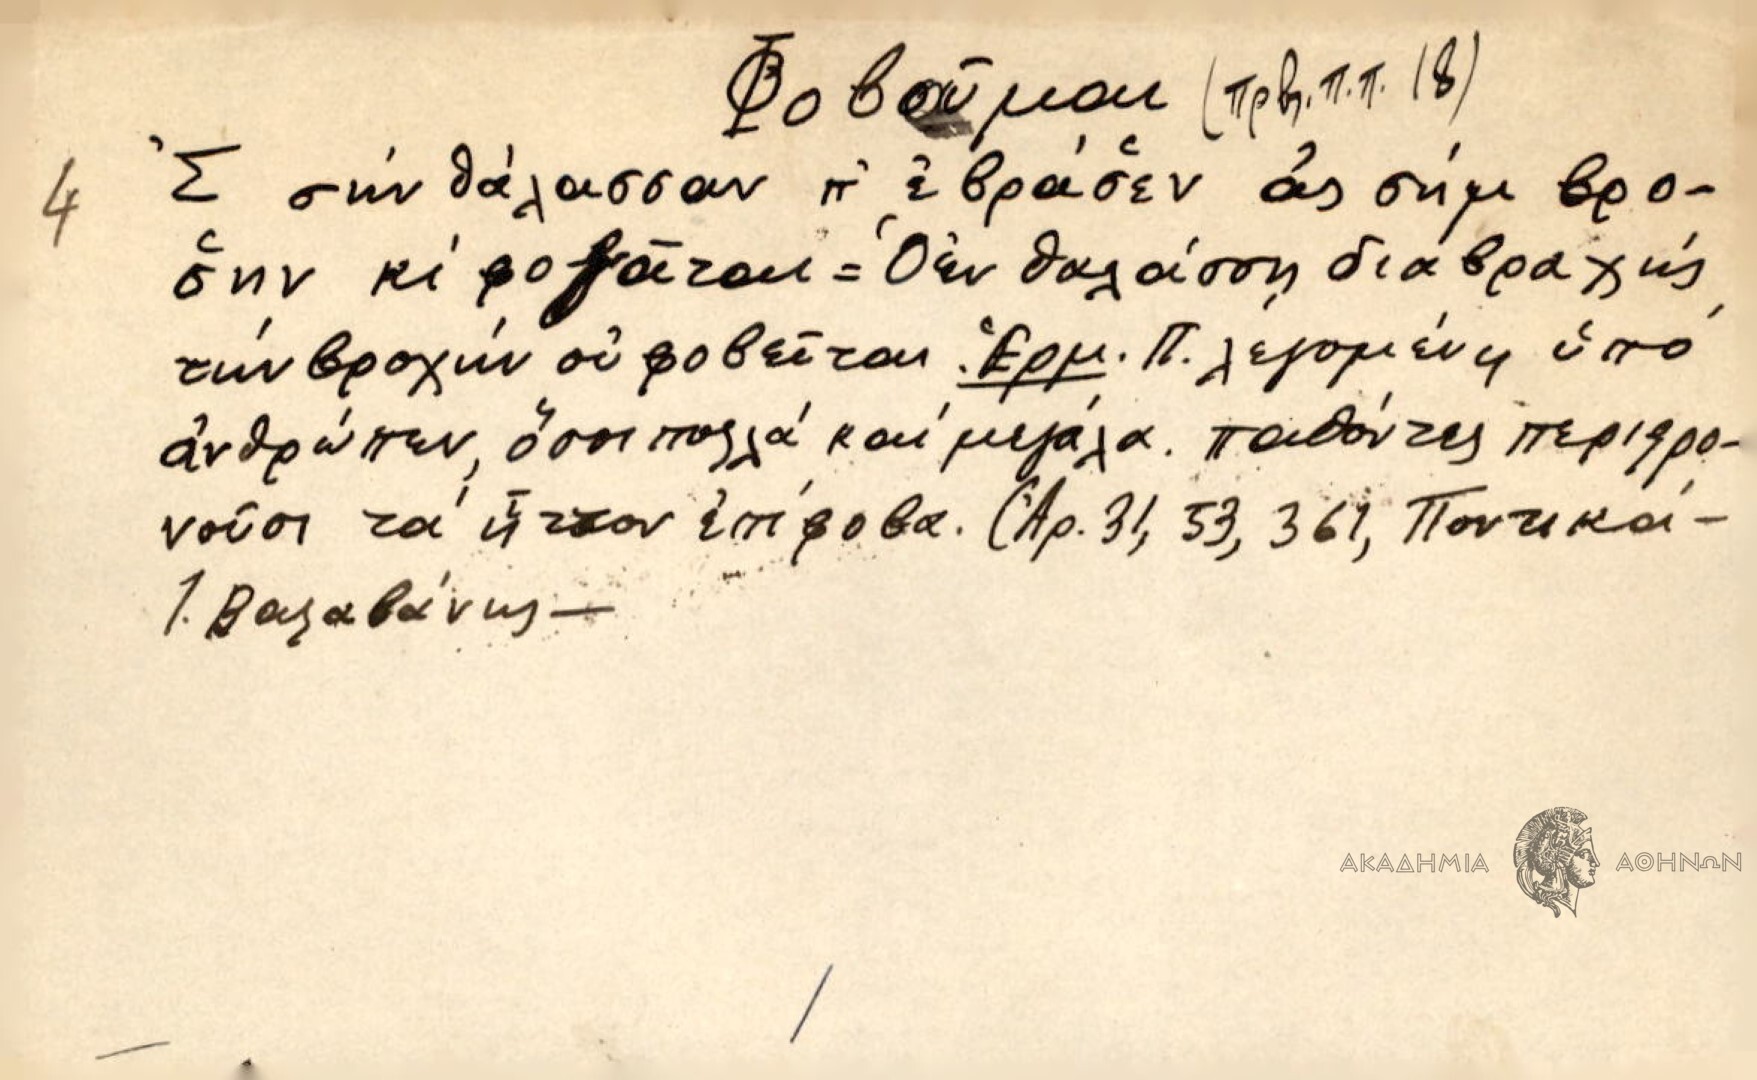 Φοβοῦμαι (πρβλ. π.π. 18)
4 Ἐ σὴν θάλασσαν π' ἐβράσ̌εν ἀς σὴμ βρο-
σ̌ὴν κὶ φογᾶται = Ὁ ἐν θαλάσσῃ διαβραχῆς
τὴν βροχὴν οὐ φοβεῖται. Ἑρμ. Π. λεγομένη ὑπὸ
ἀνθρώπων, ὅσοι πολλὰ καὶ μεγάλα παθόντες περιφρο-
νοῦσι τὰ ἧττον ἐπίφοβα. (Ἀρ. 31, 53, 361, Ποντικά-
Ι. Βαλαβάνης—
ΑΚΑΔΗΜΙΑ ΑΘΗΝΩΝ